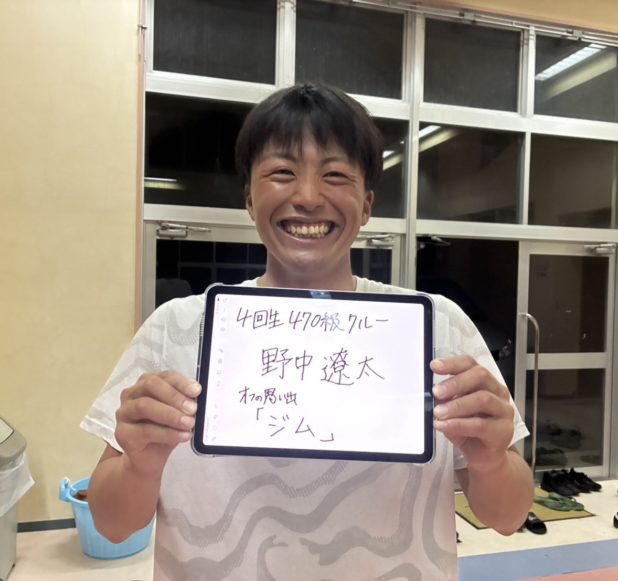 4回生 470級 クルー
野中 遼太
オフの思い出
「ジム」